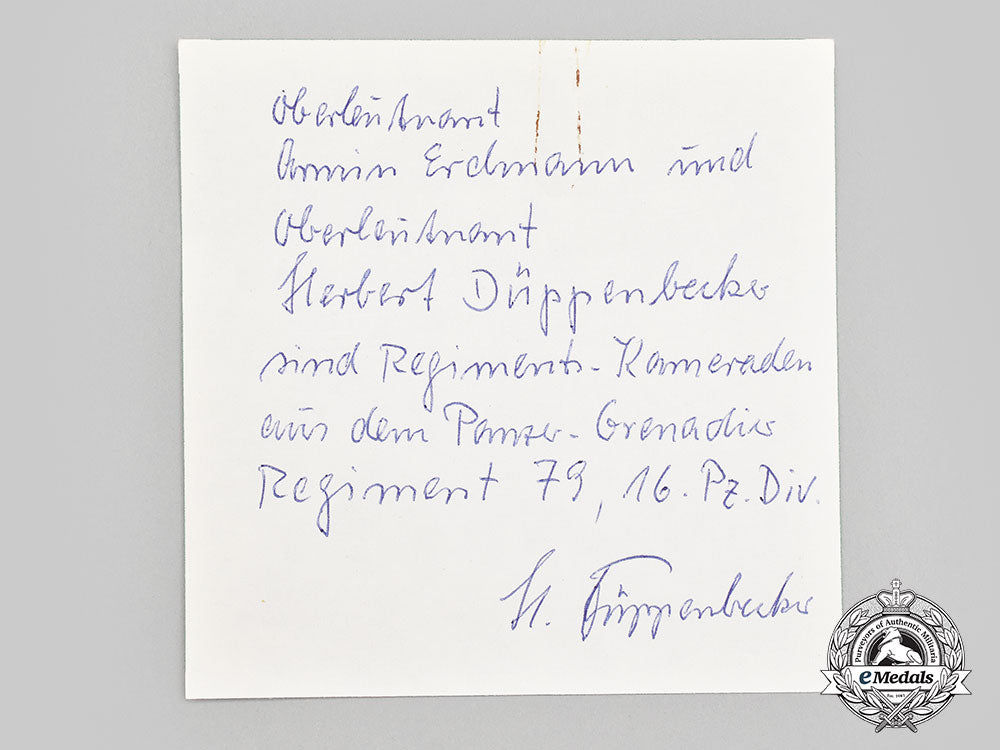 Oberleutnant
Armin Erdmann und
Oberleutnant
Herbert Düppenbecker
sind Regiments-Kameraden
aus dem Panzer-Grenadier
Regiment 79, 16. Pz. Div.
H. Düppenbecker
Purveyors of Authentic Militaria
eMedals